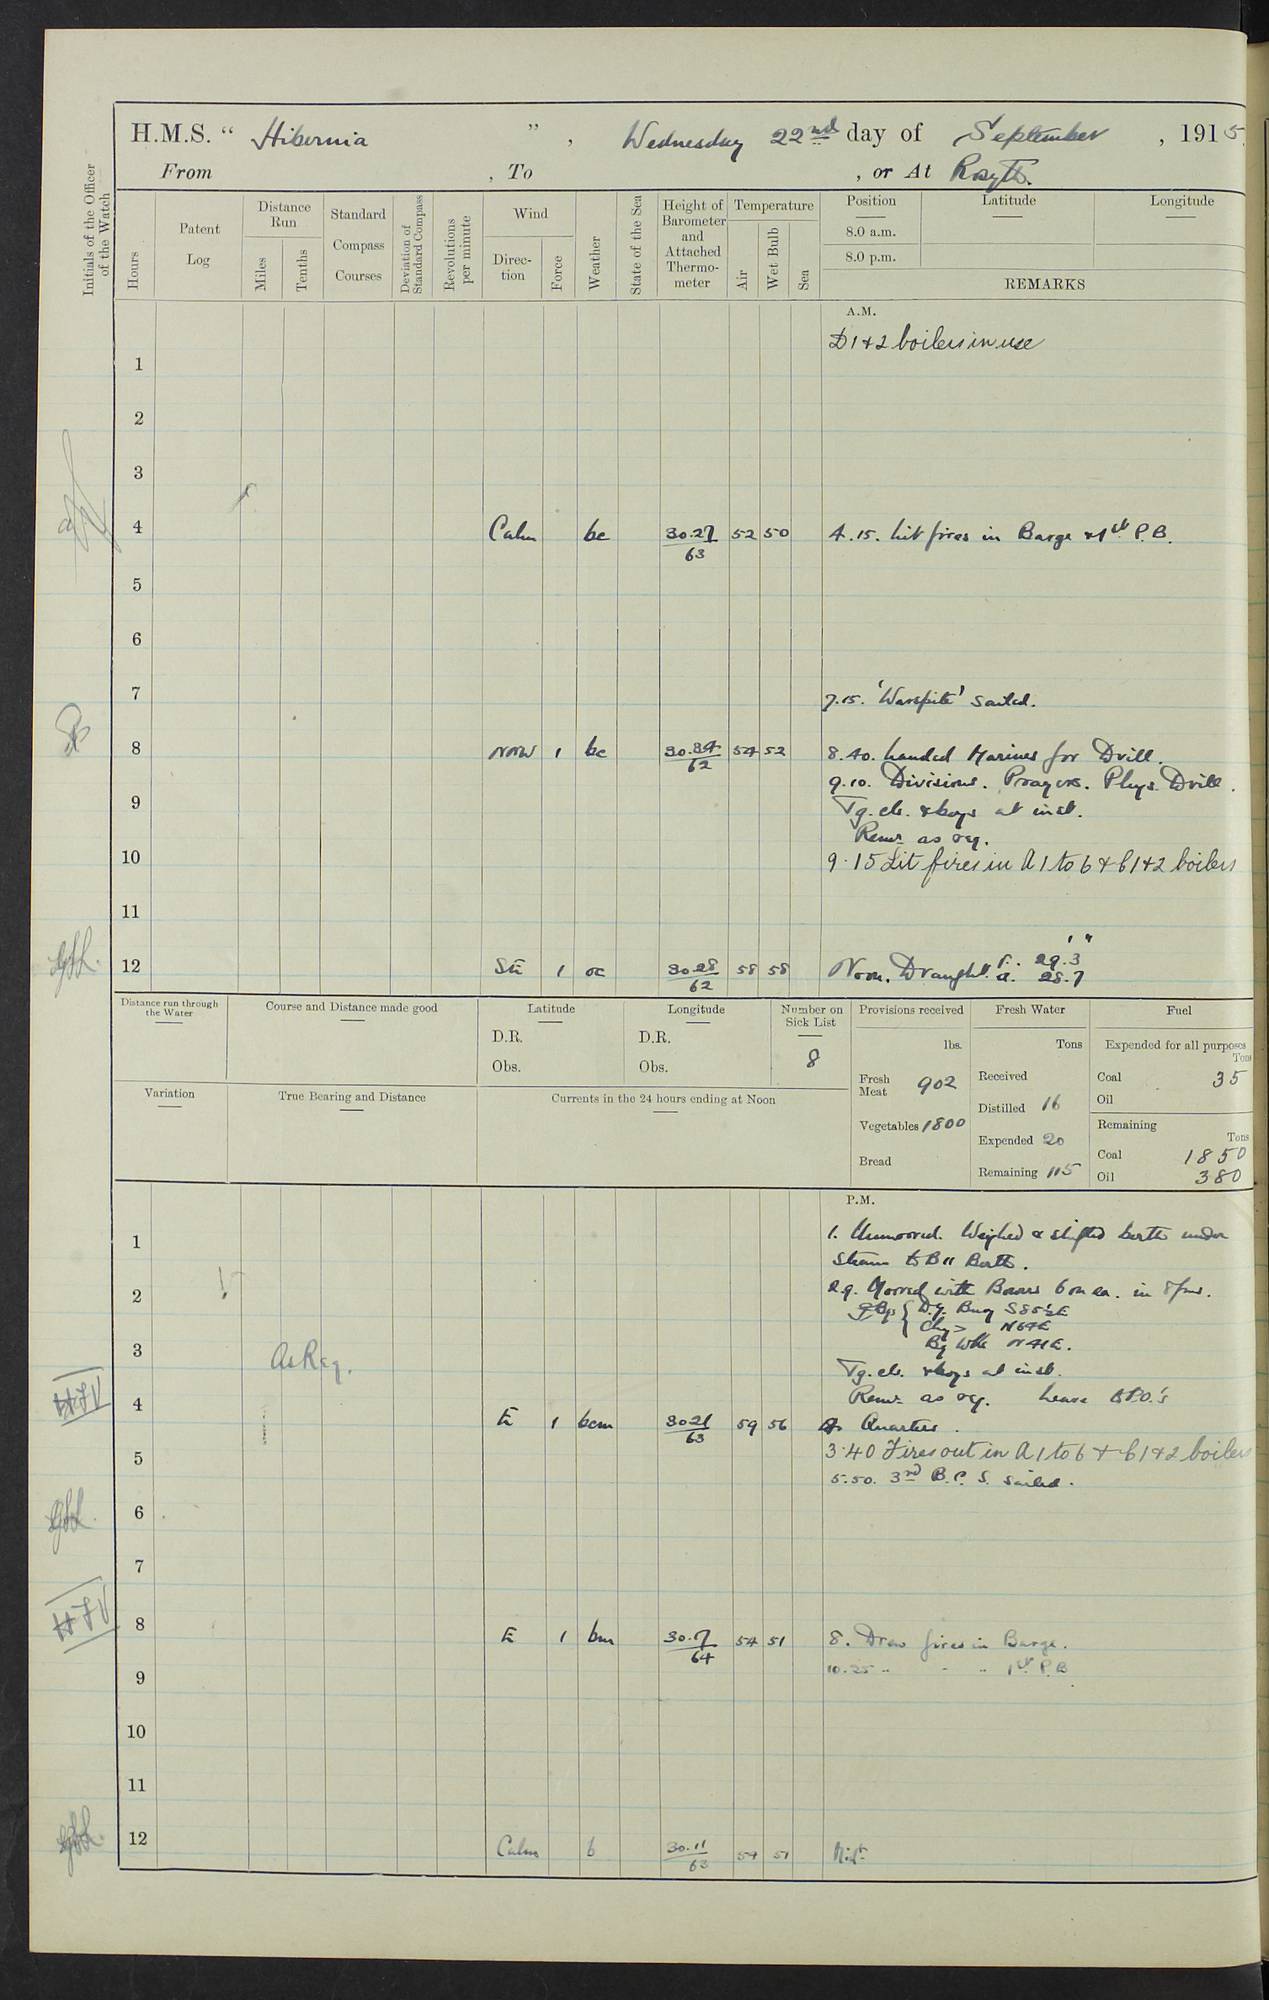 H.M.S. “ Hibernia ” , Wednesday 22nd day of September , 1915
From , To , or At Rosyth.
Initials of the Officer of the Watch
Hours
Patent Log
Distance Run
Miles
Tenths
Standard Compass Courses
Deviation of Standard Compass
Revolutions per minute
Wind
Direction
Force
Weather
State of the Sea
Height of Barometer and Attached Thermometer
Temperature
Air
Wet Bulb
Sea
Position
8.0 a.m.
8.0 p.m.
Latitude
Longitude
REMARKS
A.M.
D 1 + 2 boilers in use
1
2
3
4 Calm bc 30.27/63 52 50 4.15. Lit fires in Barge & 1st P.B.
5
6
7 7.15. 'Warspite' sailed.
8 NNW 1 bc 30.34/62 54 52 8.40. Landed Marines for Drill.
9.10. Divisions. Prayers. Phys. Drill.
9 Tg. cls. & boys at inst.
Remr. as req.
10 9.15 Lit fires in A 1 to 6 + C 1 + 2 boilers
11
12 SE 1 oc 30.28/62 58 58 Noon. Draught. F. 29' . 3"
a. 28.7
Distance run through the Water
Course and Distance made good
Latitude
D.R.
Obs.
Longitude
D.R.
Obs.
Number on Sick List
8
Provisions received
lbs.
Fresh Meat 902
Vegetables 1800
Bread
Fresh Water
Tons
Received
Distilled 16
Expended 20
Remaining 115
Fuel
Expended for all purposes
Tons
Coal 35
Oil
Remaining
Tons
Coal 1850
Oil 380
Variation
True Bearing and Distance
Currents in the 24 hours ending at Noon
P.M.
1 1. Unmoored. Weighed & shifted berth under
steam to B11 Berth.
2 2.9. Moored with Bowers 6 on ea. in 8 fms.
D.G. Buoy S85½E
N64E
N41E.
3 As Req.
Tg. cls. & boys at inst.
Remr. as req. Leave
4 E 1 bcm 30.21/63 59 56 Quarters.
5 3.40 Fires out in A 1 to 6 + C 1 + 2 boilers
5.50. 3rd B.C.S. sailed.
6
7
8 E 1 bm 30.17/64 54 51 8. Drew fires in Barge.
9 10.25 " " " 1st P.B
10
11
12 Calm b 30.11/63 54 51